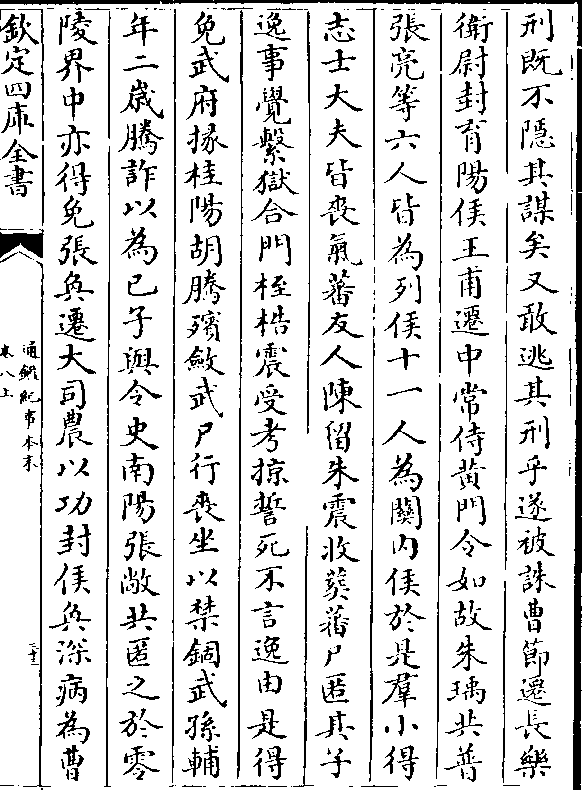 刑既不隠其謀矣又敢逃其刑乎遂被誅曹節遷長樂
衛尉封育陽侯王甫遷中常侍黄門令如故朱瑀共普
張亮等六人皆為列侯十一人為關内侯於是羣小得
志士大夫皆喪氣蕃友人陳留朱震收葬蕃尸匿其子
逸事覺繫獄合門桎梏震受考掠誓死不言逸由是得
免武府掾桂陽胡騰殯斂武尸行喪坐以禁錮武孫輔
年二歳騰詐以為已子與令史南陽張敞共匿之於零
陵界中亦得免張奐遷大司農以功封侯奐深病為曹
欽定四庫全書
通鑑紀事本末
卷八上
三十三